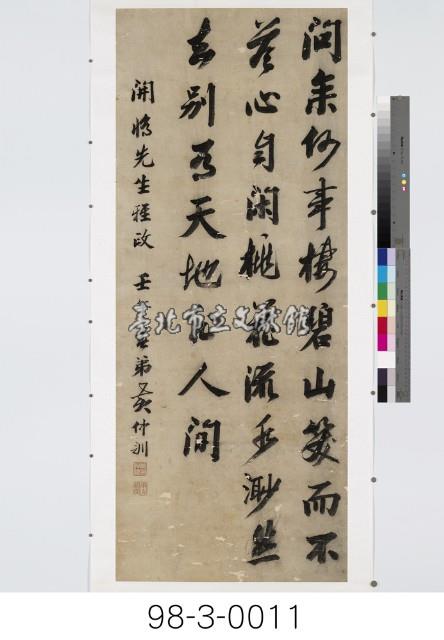 問余何事棲碧山笑而不
答心自閑桃花流水渺然
去別有天地非人間
開 先生雅政 壬 弟黃仲訓
臺北市立文獻館
98-3-0011